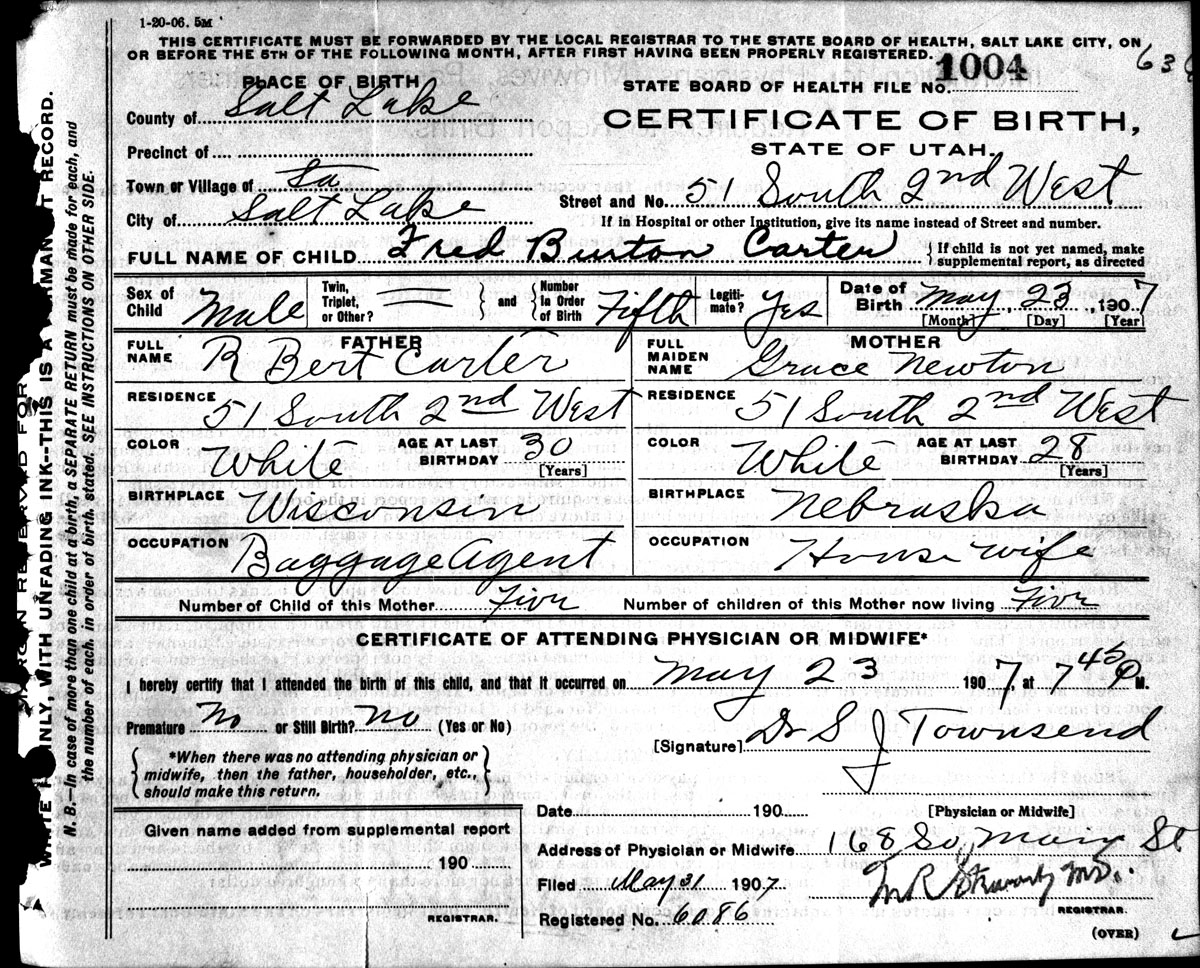 1-20-06. 5M
THIS CERTIFICATE MUST BE FORWARDED BY THE LOCAL REGISTRAR TO THE STATE BOARD OF HEALTH, SALT LAKE CITY, ON
OR BEFORE THE 5TH OF THE FOLLOWING MONTH, AFTER FIRST HAVING BEEN PROPERLY REGISTERED.
PLACE OF BIRTH
STATE BOARD OF HEALTH FILE No. 1004
County of Salt Lake
CERTIFICATE OF BIRTH,
STATE OF UTAH.
Precinct of
Town or Village of Sa
Street and No. 51 South 2nd West
City of Salt Lake
If in Hospital or other Institution, give its name instead of Street and number.
FULL NAME OF CHILD Fred Burton Carter
{If child is not yet named, make
supplemental report, as directed
Sex of Child Male
Twin, Triplet, or Other? } and { Number In Order of Birth Fifth
Legiti-mate? Yes
Date of Birth May 23, 1907
[Month] [Day] [Year]
FATHER
FULL NAME R Bert Carter
RESIDENCE 51 South 2nd West
COLOR White AGE AT LAST BIRTHDAY 30 [Years]
BIRTHPLACE Wisconsin
OCCUPATION Baggage Agent
MOTHER
FULL MAIDEN NAME Grace Newton
RESIDENCE 51 South 2nd West
COLOR White AGE AT LAST BIRTHDAY 28 [Years]
BIRTHPLACE Nebraska
OCCUPATION House wife
Number of Child of this Mother Five Number of children of this Mother now living Five
CERTIFICATE OF ATTENDING PHYSICIAN OR MIDWIFE*
I hereby certify that I attended the birth of this child, and that it occurred on May 23 1907, at 7 45 P M.
Premature No or Still Birth? No (Yes or No)
[Signature] Dr S J Townsend
{*When there was no attending physician or
midwife, then the father, householder, etc.,
should make this return.}
Date 190
[Physician or Midwife]
Given name added from supplemental report
190
REGISTRAR.
Address of Physician or Midwife 168 So Main St
Filed May 31 1907
M R Stewart MD.
REGISTRAR.
Registered No. 6086
(OVER)
MARGIN RESERVED FOR
WRITE PLAINLY, WITH UNFADING INK--THIS IS A PERMANENT RECORD.
N. B.—In case of more than one child at a birth, a SEPARATE RETURN must be made for each, and
the number of each, in order of birth, stated. SEE INSTRUCTIONS ON OTHER SIDE.